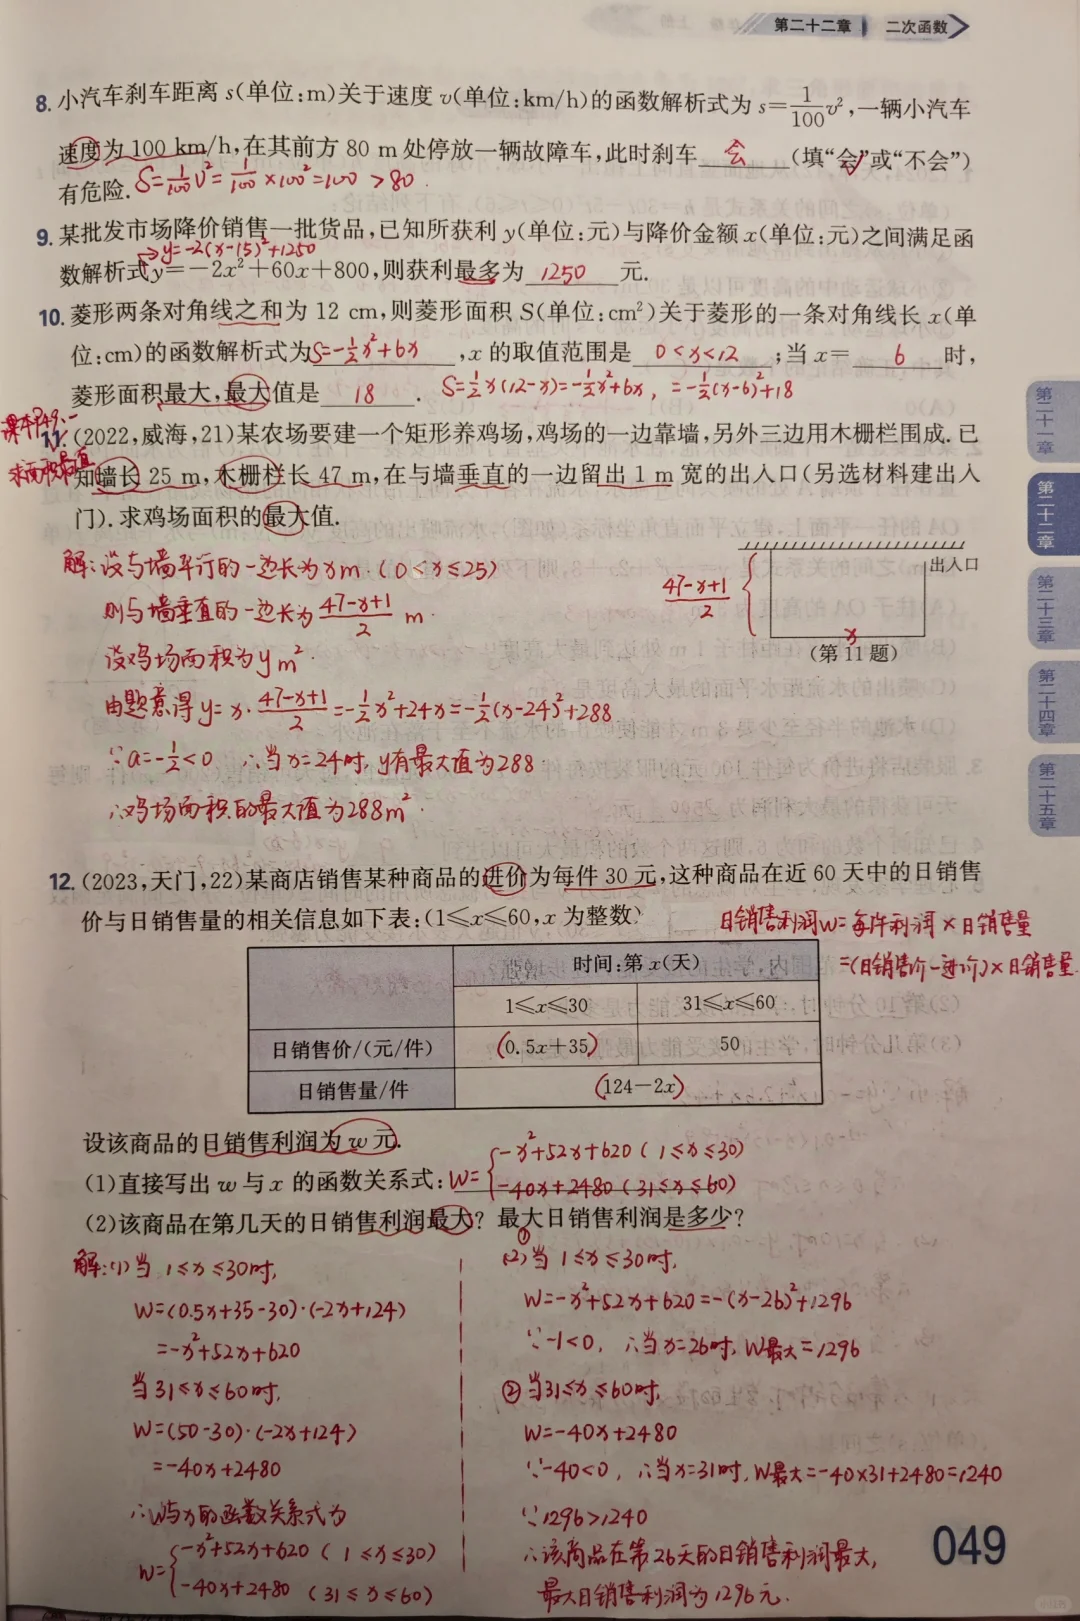 第二十二章 二次函数
8. 小汽车刹车距离 s(单位:m)关于速度 v(单位:km/h)的函数解析式为 s=1/100v²,一辆小汽车
速度为 100 km/h,在其前方 80 m 处停放一辆故障车,此时刹车 会 (填“会”或“不会”)
有危险. S=1/100V²=1/100×100²=100 >80.
9. 某批发市场降价销售一批货品,已知所获利 y(单位:元)与降价金额 x(单位:元)之间满足函
y=-2(x-15)²+1250
数解析式 y=-2x²+60x+800,则获利最多为 1250 元.
10. 菱形两条对角线之和为 12 cm,则菱形面积 S(单位:cm²)关于菱形的一条对角线长 x(单
位:cm)的函数解析式为 S=-1/2x²+6x ,x 的取值范围是 0<x<12 ;当 x= 6 时,
菱形面积最大,最大值是 18 . S=1/2x(12-x)=-1/2x²+6x, =-1/2(x-6)²+18
课本P49:-
求面积最值
11. (2022,威海,21)某农场要建一个矩形养鸡场,鸡场的一边靠墙,另外三边用木栅栏围成. 已
知墙长 25 m,木栅栏长 47 m,在与墙垂直的一边留出 1 m 宽的出入口(另选材料建出入
门). 求鸡场面积的最大值.
解:设与墙平行的一边长为xm.(0<x≤25)
则与墙垂直的一边长为 47-x+1/2 m
设鸡场面积为ym².
由题意得 y=x·47-x+1/2=-1/2x²+24x=-1/2(x-24)²+288
∵a=-1/2<0 ∴当x=24时,y有最大值为288
∴鸡场面积的最大值为288m².
出入口
47-x+1/2
x
(第 11 题)
12. (2023,天门,22)某商店销售某种商品的进价为每件 30 元,这种商品在近 60 天中的日销售
价与日销售量的相关信息如下表:(1≤x≤60,x 为整数)
日销售利润W=每件利润×日销售量
=(日销售价-进价)×日销售量
时间:第 x(天)
1≤x≤30 31≤x≤60
日销售价/(元/件) (0.5x+35) 50
日销售量/件 (124-2x)
设该商品的日销售利润为 w 元.
(1)直接写出 w 与 x 的函数关系式: W={-x²+52x+620 (1≤x≤30)
-40x+2480 (31≤x≤60)
(2)该商品在第几天的日销售利润最大? 最大日销售利润是多少?
解:(1)当 1≤x≤30时,
W=(0.5x+35-30)·(-2x+124)
=-x²+52x+620
当31≤x≤60时,
W=(50-30)·(-2x+124)
=-40x+2480
∴W与x的函数关系式为
W={-x²+52x+620 (1≤x≤30)
-40x+2480 (31≤x≤60)
(2)①当 1≤x≤30时,
W=-x²+52x+620=-(x-26)²+1296
∵-1<0, ∴当x=26时,W最大=1296
②当31≤x≤60时,
W=-40x+2480
∵-40<0, ∴当x=31时,W最大=-40×31+2480=1240
∵1296>1240
∴该商品在第26天的日销售利润最大,
最大日销售利润为1296元.
第二十一章
第二十二章
第二十三章
第二十四章
第二十五章
049